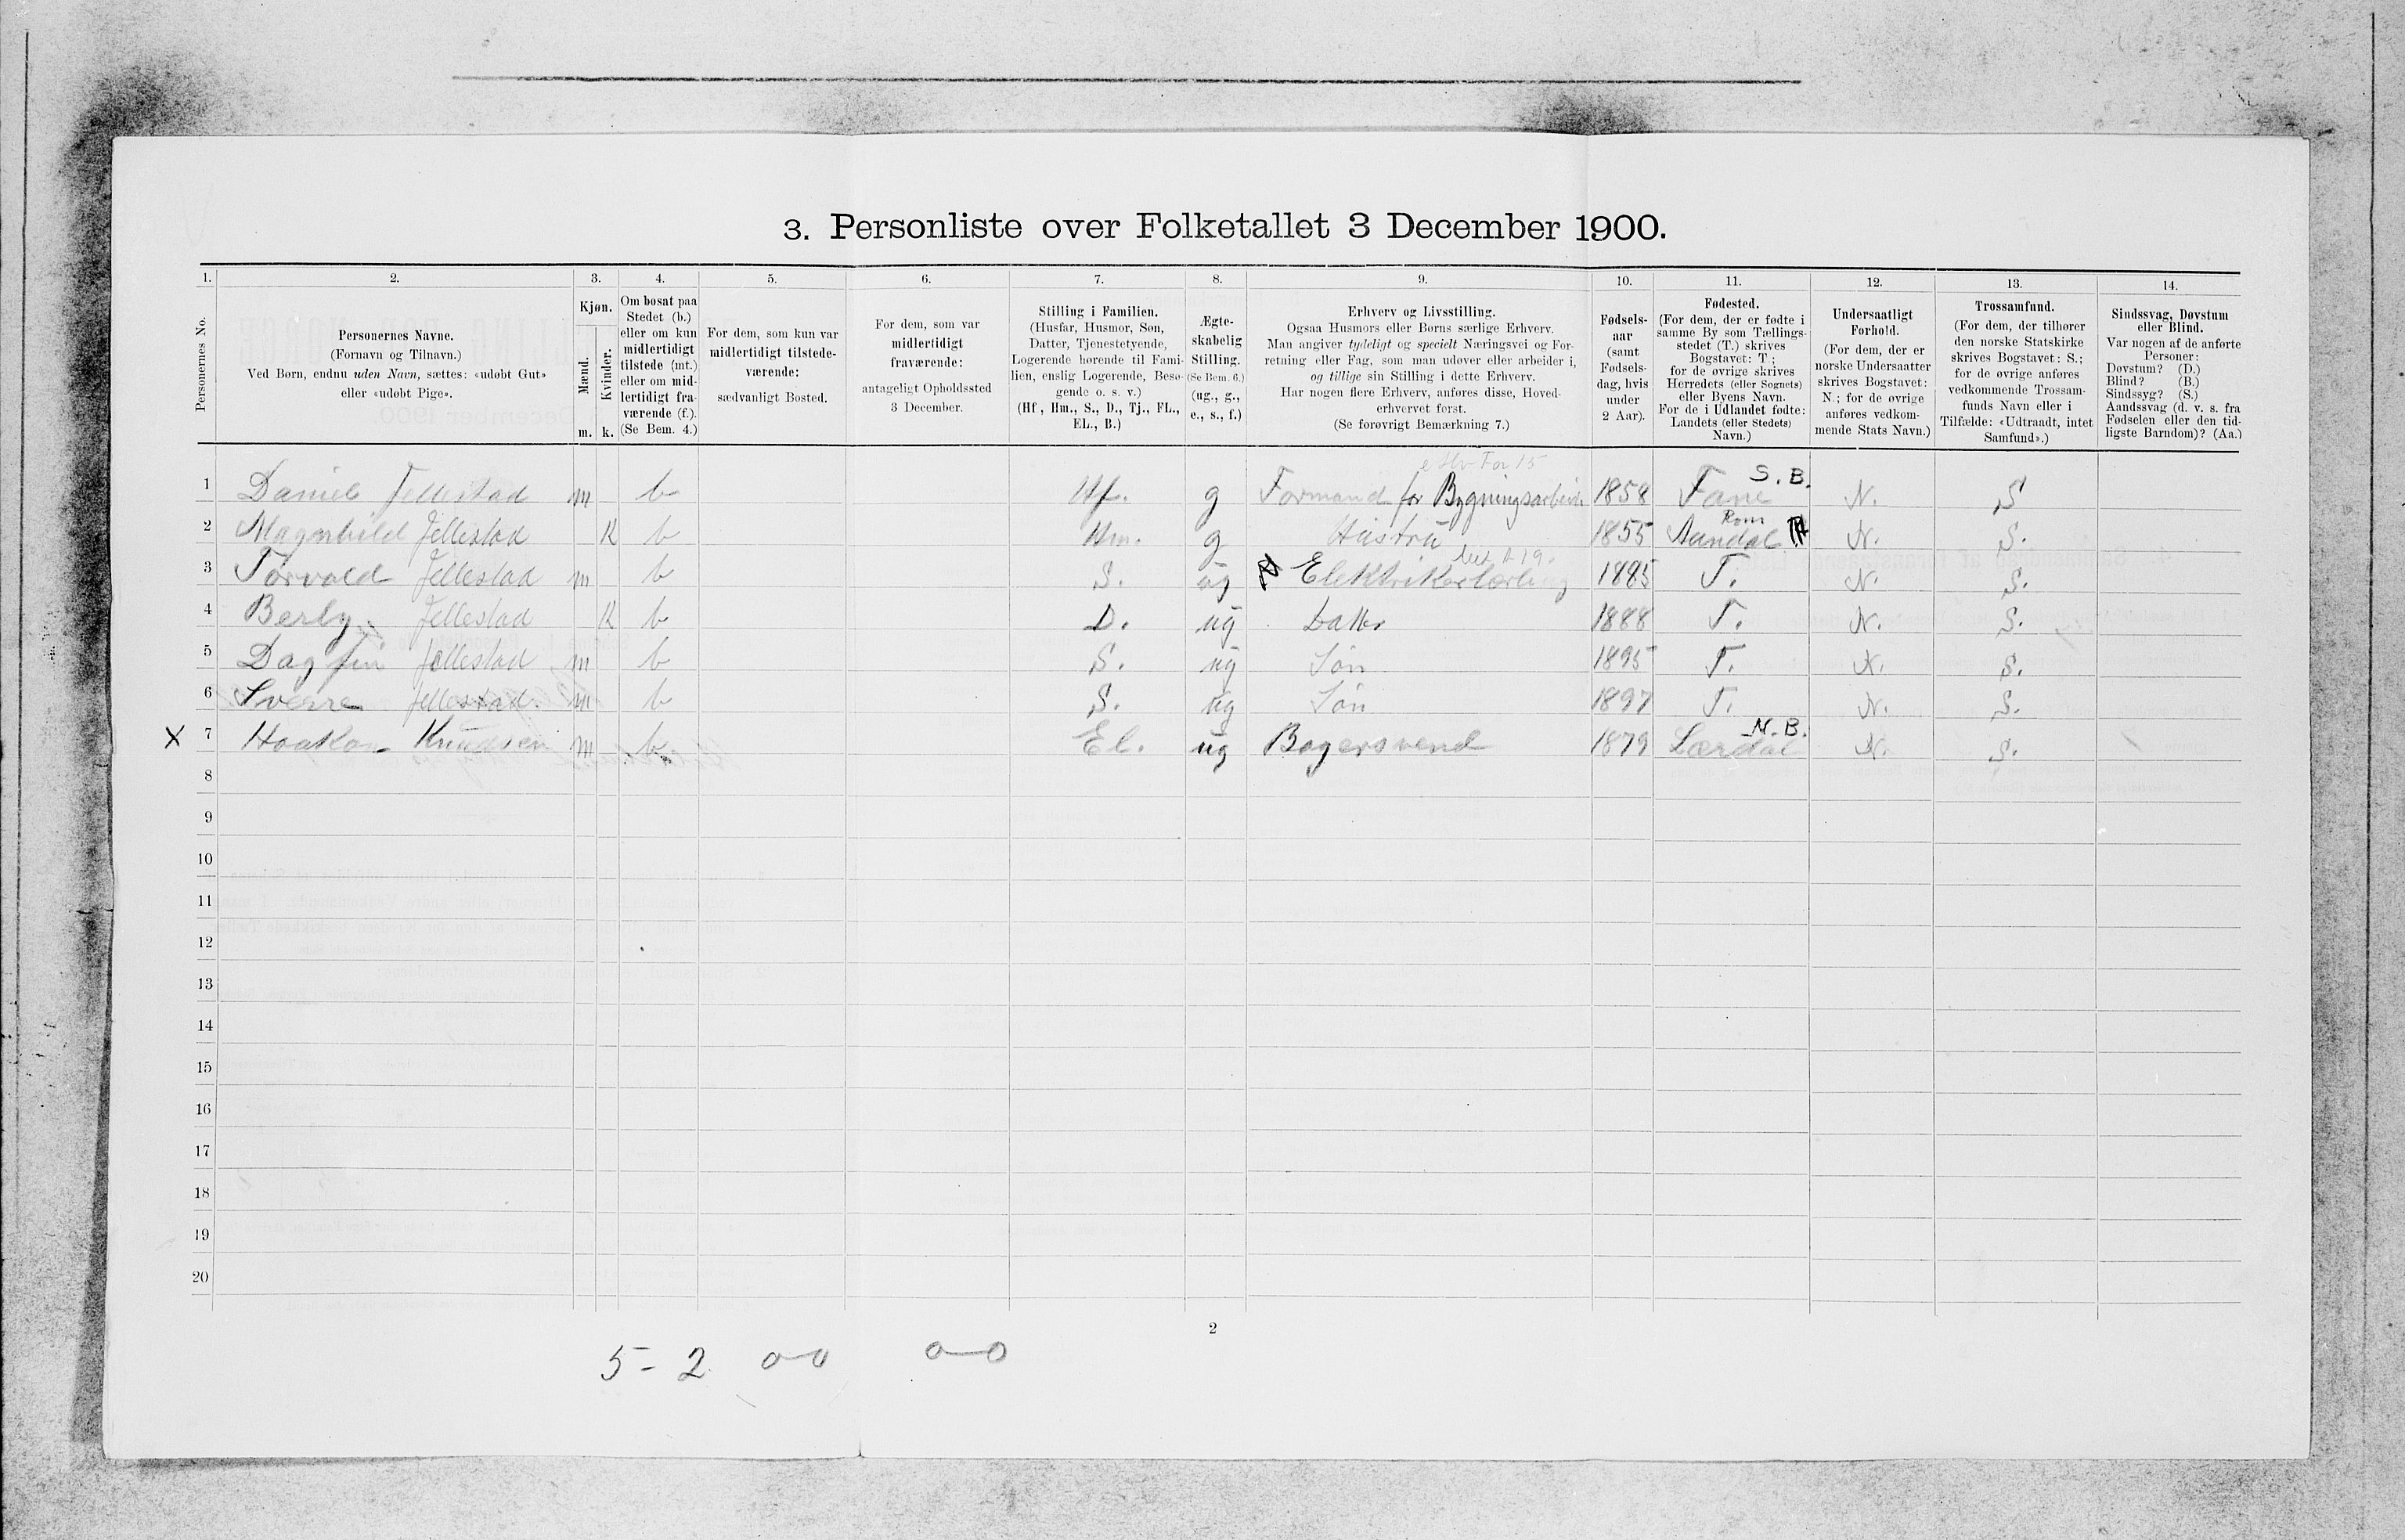 3. Personliste over Folketallet 3 December 1900.
1. 2. 3. 4. 5. 6. 7. 8. 9. 10. 11. 12. 13. 14.
Personernes No.
Personernes Navne.
(Fornavn og Tilnavn.)
Ved Børn, endnu uden Navn, sættes: «udøbt Gut»
eller «udøbt Pige».
Kjøn.
Mænd.
Kvinder.
m. k.
Om bosat paa
Stedet (b.)
eller om kun
midlertidigt
tilstede (mt.)
eller om mid-
lertidigt fra-
værende (f.).
(Se Bem. 4.)
For dem, som kun var
midlertidigt tilstede-
værende:
sædvanligt Bosted.
For dem, som var
midlertidigt
fraværende:
antageligt Opholdssted
3 December.
Stilling i Familien.
(Husfar, Husmor, Søn,
Datter, Tjenestetyende,
Logerende hørende til Fami-
lien, enslig Logerende, Besø-
gende o. s. v.)
(Hf., Hm., S., D., Tj., FL.,
EL., B.)
Ægte-
skabelig
Stilling.
(Se Bem. 6.)
(ug., g.,
e., s., f.)
Erhverv og Livsstilling.
Ogsaa Husmors eller Børns særlige Erhverv.
Man angiver tydeligt og specielt Næringsvei og For-
retning eller Fag, som man udøver eller arbeider i,
og tillige sin Stilling i dette Erhverv.
Har nogen flere Erhverv, anføres disse, Hoved-
erhvervet først.
(Se forøvrigt Bemærkning 7.)
Fødsels-
aar
(samt
Fødsels-
dag, hvis
under
2 Aar).
Fødested.
(For dem, der er fødte i
samme By som Tællings-
stedet (T.) skrives
Bogstavet: T;
for de øvrige skrives
Herredets (eller Sognets)
eller Byens Navn.
For de i Udlandet fødte:
Landets (eller Stedets)
Navn.)
Undersaatligt
Forhold.
(For dem, der er
norske Undersaatter
skrives Bogstavet:
N.; for de øvrige
anføres vedkom-
mende Stats Navn.)
Trossamfund.
(For dem, der tilhører
den norske Statskirke
skrives Bogstavet: S.;
for de øvrige anføres
vedkommende Trossam-
funds Navn eller i
Tilfælde: «Udtraadt, intet
Samfund».)
Sindssvag, Døvstum
eller Blind.
Var nogen af de anførte
Personer:
Døvstum? (D.)
Blind? (B.)
Sindssyg? (S.)
Aandssvag (d. v. s. fra
Fødselen eller den tid-
ligste Barndom)? (Aa.)
1 Daniel Jellestad m b Hf. g Formand for Bygningsarbeide 1858 Fane S. B. N. S
2 Magnhild Jellestad K b Hm. g Hustru 1855 Rom N. S.
3 Torvald Jellestad m b S. ug Elektrikerlærling 1885 T. N. S.
4 Jellestad K b D. ug Datter 1888 T. N. S.
5 Dagfin Jellestad m b S. ug Søn 1895 T. N. S.
6 Sverre Jellestad m b S. ug Søn 1897 T. N. S.
X 7 Haakon Knudsen m b El. ug Bagersvend 1879 Lærdal N. B. N. S.
8
9
10
11
12
13
14
15
16
17
18
19
20
2
5 - 2 0-0 0-0